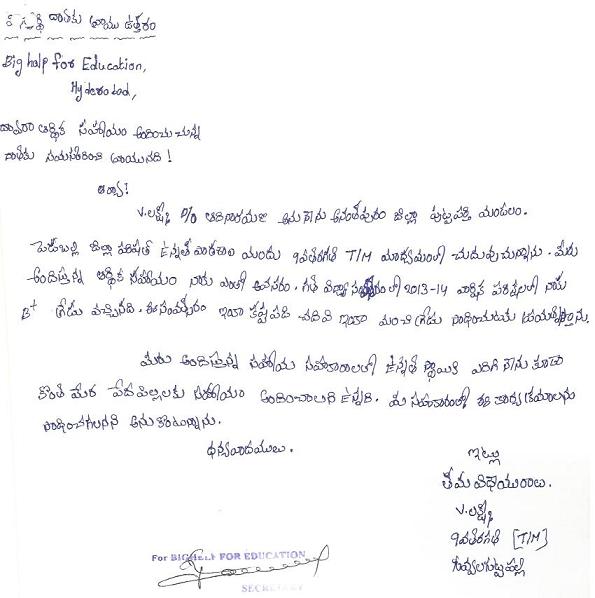 దాతకు వ్రాయు ఉత్తరం
Big help for Education,
Hyderabad,
ద్వారా ఆర్థిక సహాయం అందించుచున్న
దాతకు నమస్కరించి వ్రాయునది!
ఆర్యా!
V.లక్ష్మి D/o ఆదినారాయణ అను నేను అనంతపురం జిల్లా పుట్టపర్తి మండలం.
పెడబల్లి జిల్లా పరిషత్ ఉన్నత పాఠశాల యందు 9వతరగతి T/M మాధ్యమంలో చదువుచున్నాను. మీరు
అందిస్తున్న ఆర్థిక సహాయం నాకు ఎంతో అవసరం. గత విద్యా సంవత్సరంలో 2013-14 వార్షిక పరీక్షలలో నాకు
B+ గ్రేడు వచ్చినది. ఈ సంవత్సరం ఇంకా కష్టపడి చదివి ఇంకా మంచి గ్రేడు సాధించుటకు ప్రయత్నిస్తాను.
మీరు అందిస్తున్న సహాయ సహకారాలతో ఉన్నత స్థాయికి ఎదిగి నేను కూడా
కొంత మేర పేదపిల్లలకు సహాయం అందించాలని ఉన్నది. మీ సహకారంతో ఈ కార్యక్రమాలను
సాధించగలనని అనుకుంటున్నాను.
ధన్యవాదములు.
ఇట్లు
తమ విధేయురాలు.
V.లక్ష్మి
9వతరగతి [T/M]
గువ్వలగుట్టపల్లి
For BIGHELP FOR EDUCATION
SECRETARY